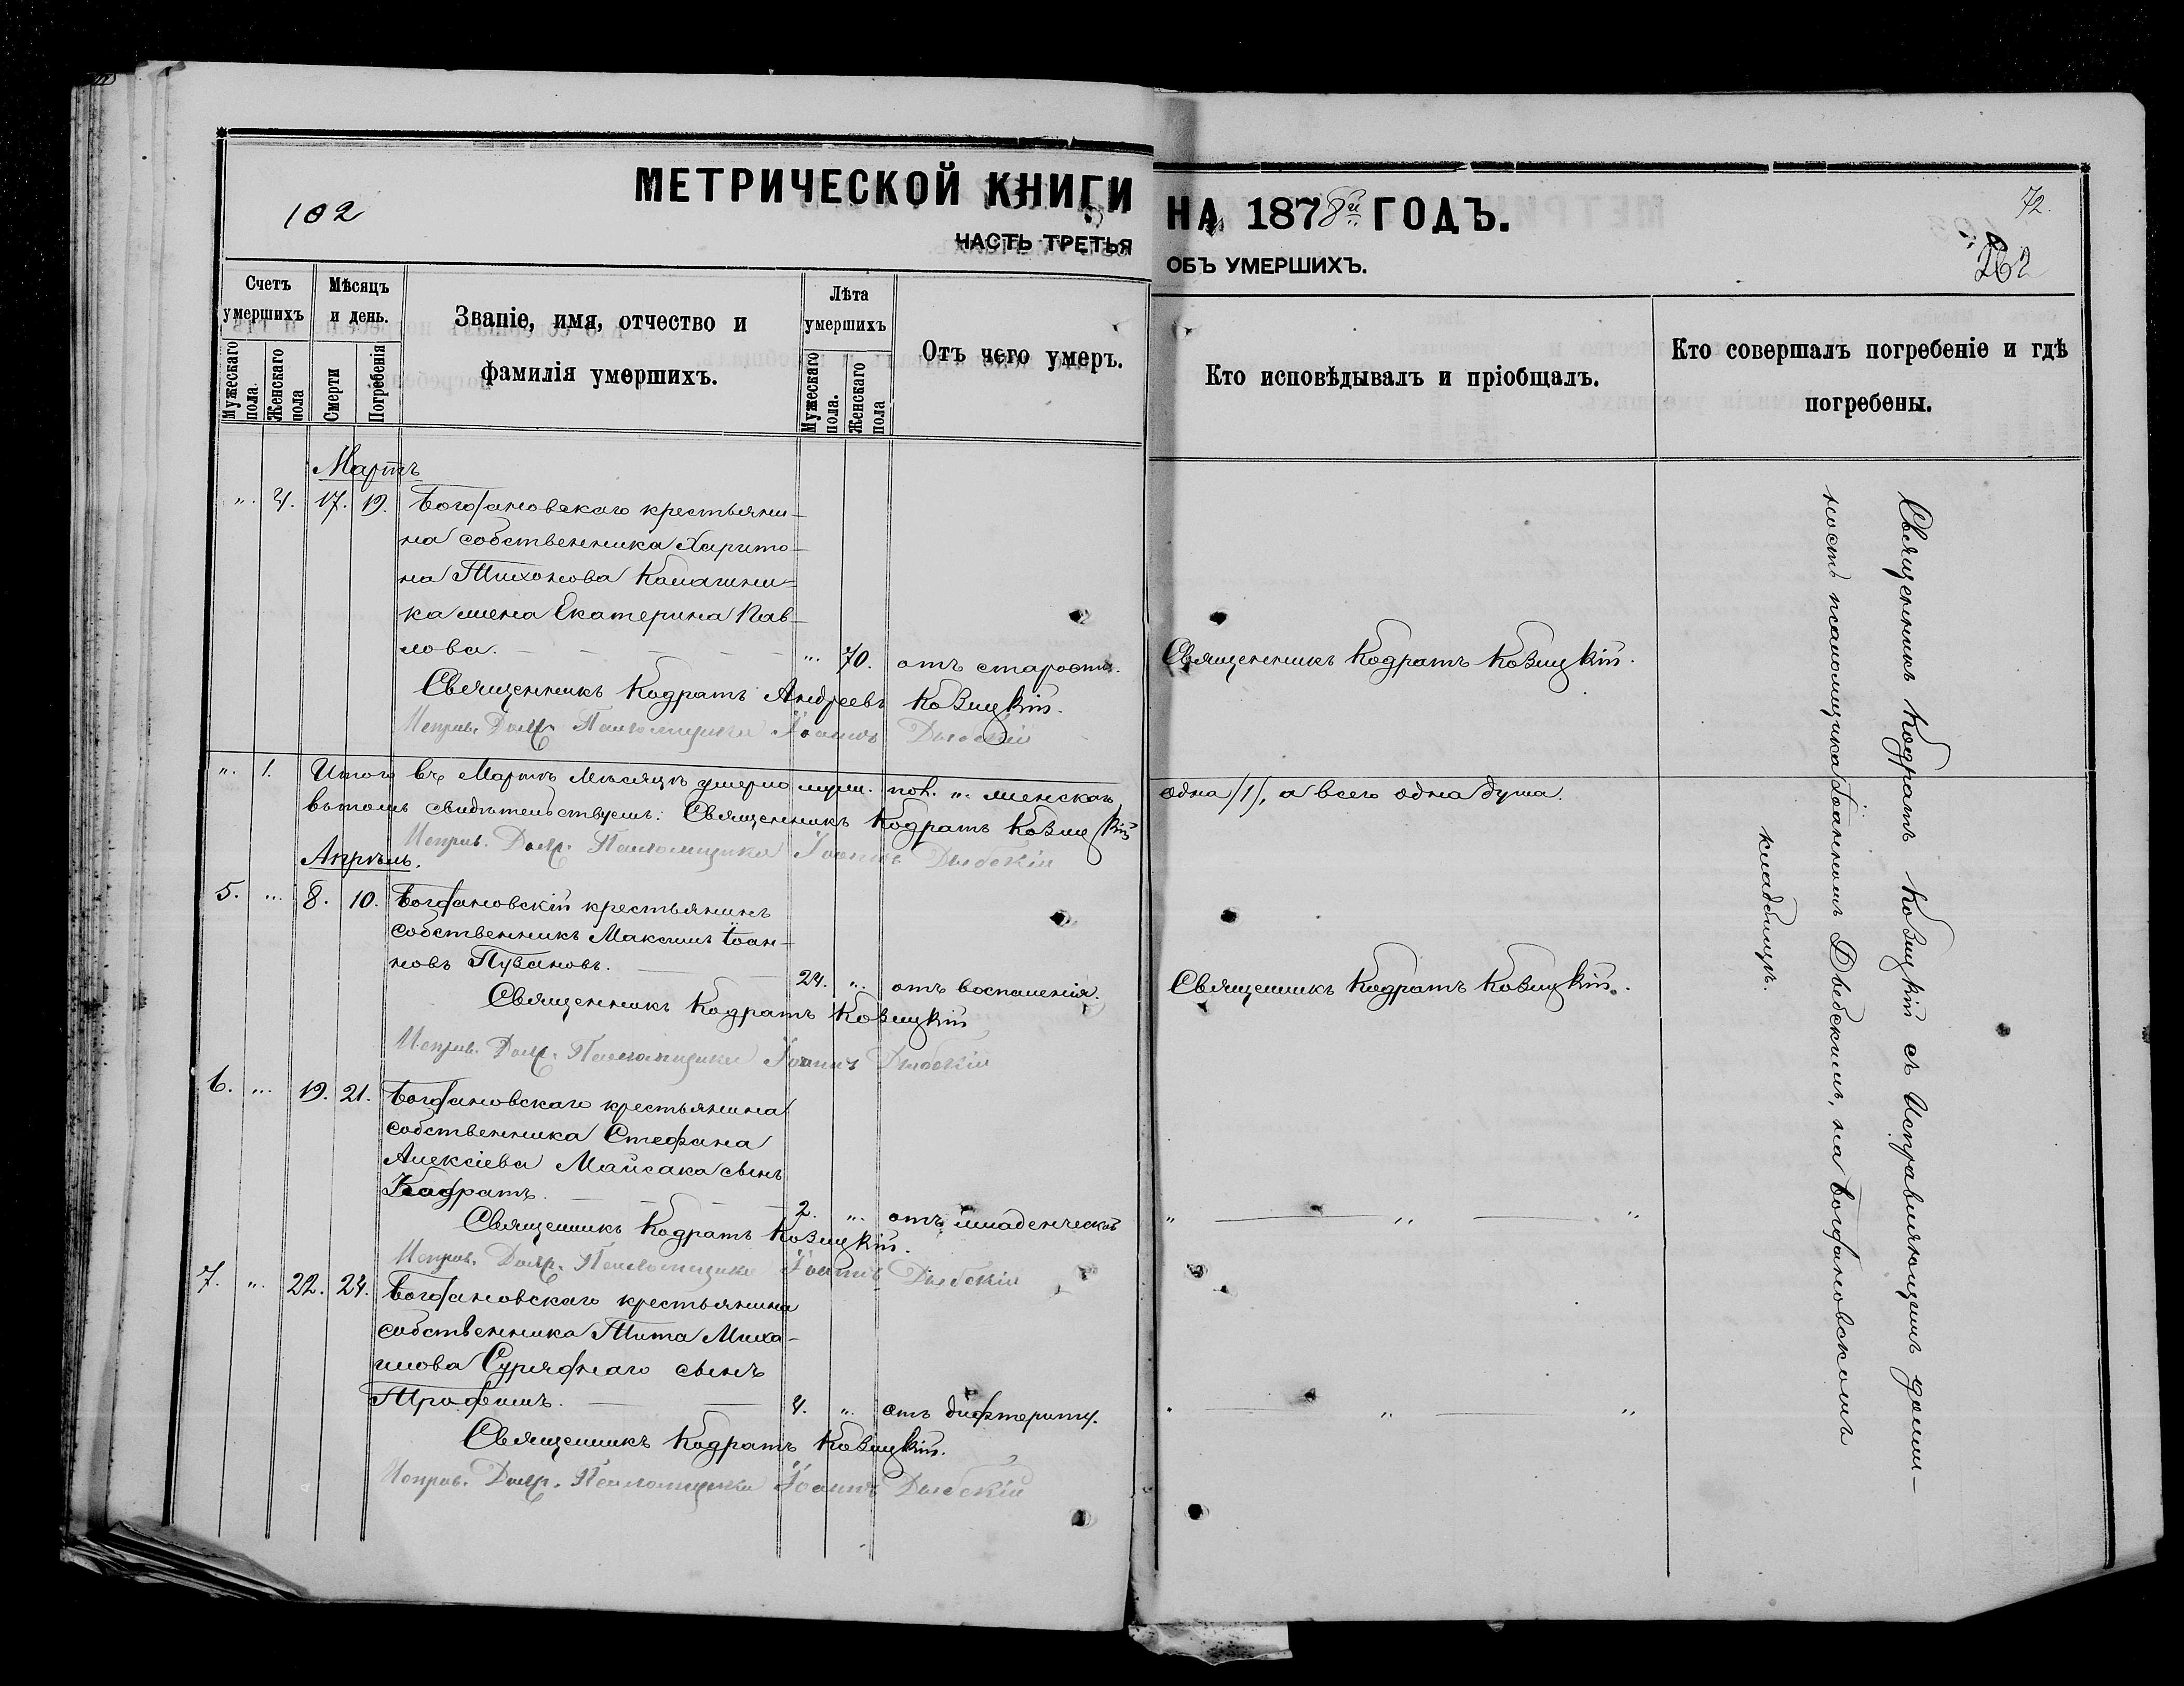 МЕТРИЧЕСКОЙ КНИГИ НА 1878й ГОДЪ.
102
72.
262
ЧАСТЬ ТРЕТЬЯ ОБЪ УМЕРШИХЪ.
Счетъ умершихъ
Мужескаго пола.
Женскаго пола
Мѣсяцъ и день.
Смерти
Погребенія
Званіе, имя, отчество и фамилія умершихъ.
Лѣта умершихъ
Мужескаго пола.
Женскаго пола
Отъ чего умеръ.
Кто исповѣдывалъ и пріобщалъ.
Кто совершалъ погребеніе и гдѣ погребены.
Мартъ
„. 4. 17. 19. Богдановскаго крестьяни-
на собственника Харито-
на Тихонова
ка жена Екатерина Пав-
лова. „. 70. отъ старости. Священникъ Кодратъ Козицкій.
Священникъ Кодратъ Андреевъ Козицкій.
Исправ. Должн. Псаломщика Іоаннъ
„. 1. Итого въ Мартѣ мѣсяцѣ умерло муж. пол. „. женскаго одна /1/, а всего одна душа.
въ томъ свидѣтельствуемъ: Священникъ Кодратъ Козицкій
Исправ. Должн. Псаломщика Іоаннъ
Апрѣль.
5. „. 8. 10. Богдановскій крестьянинъ
собственникъ Максимъ Іоан-
новъ Пузановъ. 24. „. отъ воспаленія. Священникъ Кодратъ Козицкій.
Священникъ Кодратъ Козицкій
Исправ. Должн. Псаломщика Іоаннъ
6. „. 19. 21. Богдановскаго крестьянина
собственника Стефана
Алексіева Майсака сынъ
Кодратъ. 2. „. отъ младенческой „ „ „
Священникъ Кодратъ Козицкій.
Исправ. Должн. Псаломщика Іоаннъ
7. „. 22. 24. Богдановскаго крестьянина
собственника Тита Миха-
илова сынъ
Трофимъ. 4. „. отъ дифтериту. „ „ „
Священникъ Кодратъ Козицкій.
Исправ. Должн. Псаломщика Іоаннъ
Священникъ Кодратъ Козицкій съ Исправляющимъ долж-
ность псаломщика Іоанномъ на Богдановскомъ
кладбищѣ.